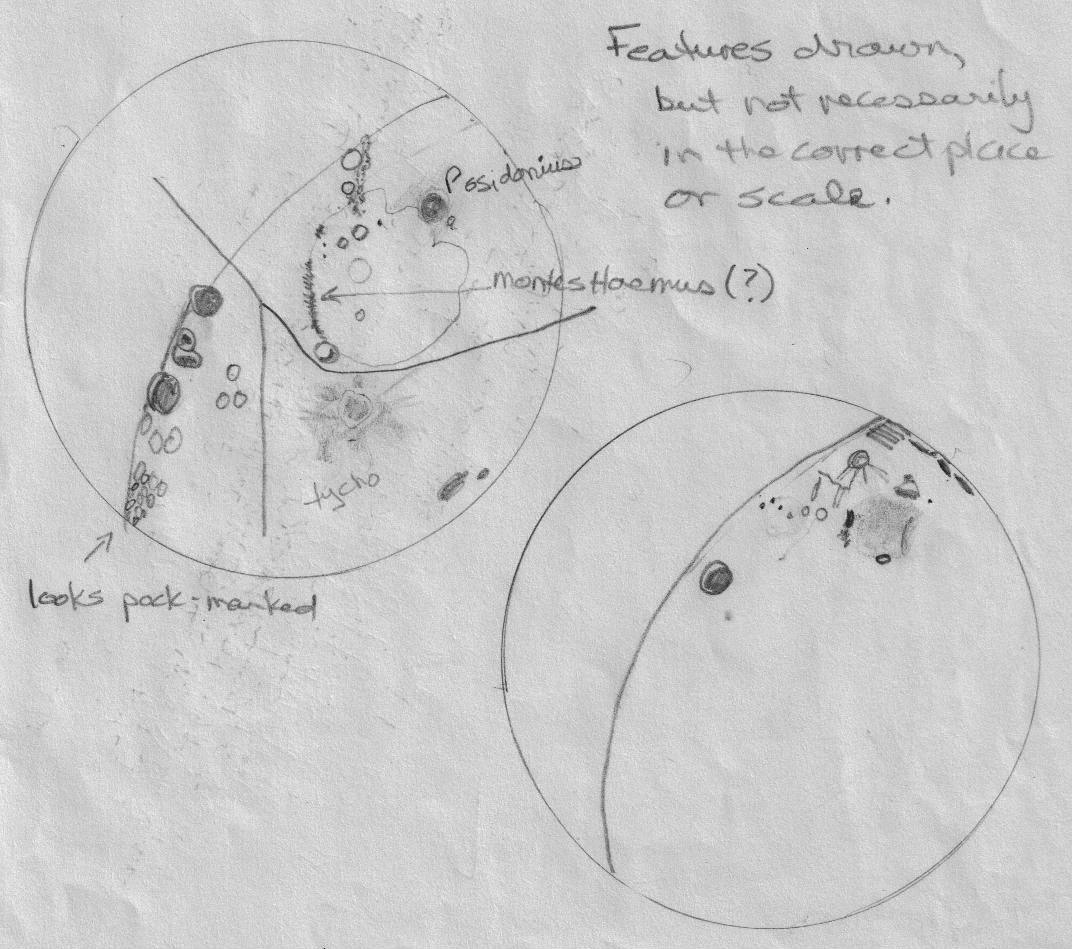 Features drawn,
but not necessarily
in the correct place
or scale.
Posidonius
Montes Haemus (?)
tycho
looks pock-marked